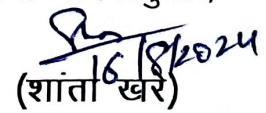 16/8/2024
(शांता खरे)